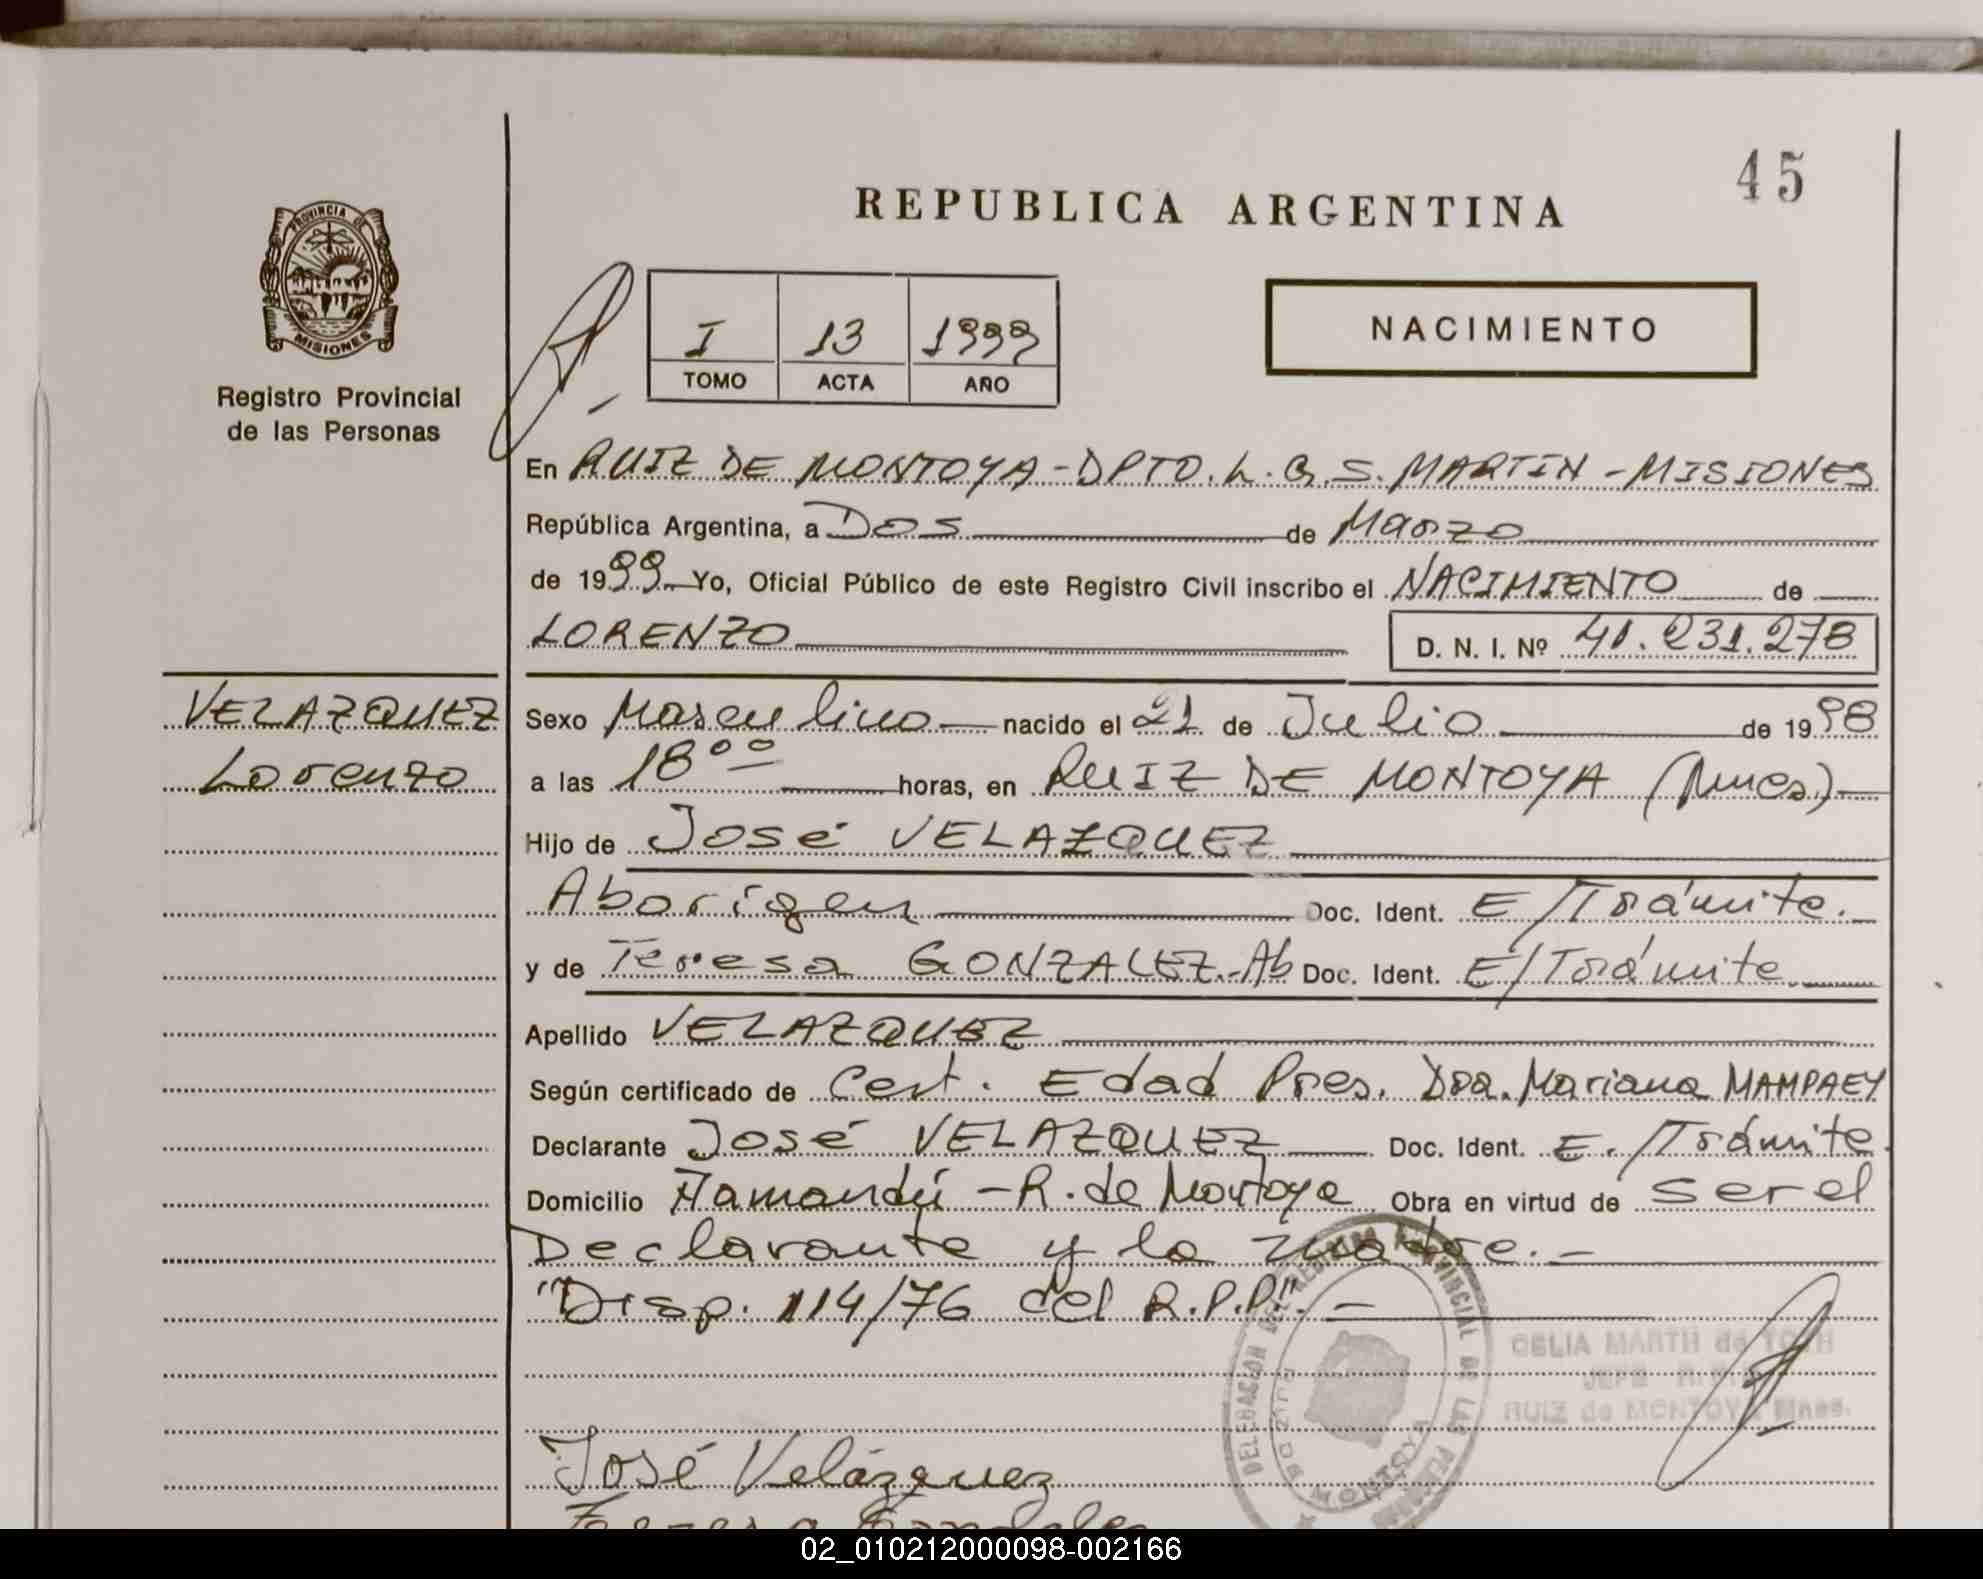 45
REPUBLICA ARGENTINA
PROVINCIA DE
MISIONES
Registro Provincial
de las Personas
I 13 1999
TOMO ACTA AÑO
NACIMIENTO
En RUIZ DE MONTOYA-DPTO. L. G. S. MARTIN-MISIONES
República Argentina, a Dos de Marzo
de 1999 Yo, Oficial Público de este Registro Civil inscribo el NACIMIENTO de
LORENZO D. N. I. Nº 41.231.278
VELAZQUEZ
Lorenzo
Sexo Masculino nacido el 21 de Julio de 1998
a las 18 ºº horas, en RUIZ DE MONTOYA (Mnes)
Hijo de José VELAZQUEZ
Aborigen Doc. Ident. E/Trámite.
y de Teresa GONZALEZ.-Ab Doc. Ident. E/Trámite.
Apellido VELAZQUEZ
Según certificado de Cert. Edad Pres. Dra. Mariana MAMPAEY
Declarante José VELAZQUEZ Doc. Ident. E./Trámite.
Domicilio Tamandú - R. de Montoya Obra en virtud de ser el
Declarante y la madre. -
"Disp. 114/76 del R.P.P.". -
DELEGACION DEL REGISTRO PROVINCIAL DE LAS
RUIZ DE MONTOYA
CELIA MARTH de TOTH
JEFE R.P.P.
RUIZ de MONTOYA Mnes.
José Velázquez
Teresa Gonzales
02_010212000098-002166